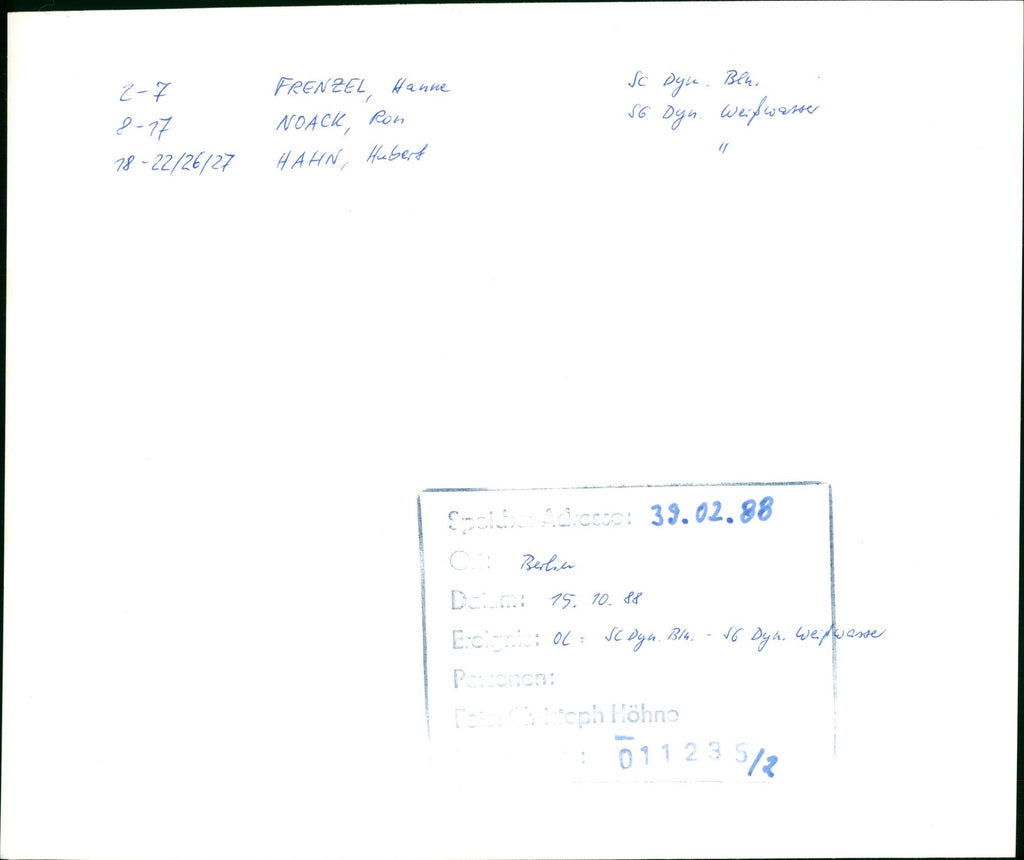 2-7 FRENZEL, Hanne SC Dyn. Bln.
8-17 NOACK, Ron SG Dyn. Weißwasser
18-22/26/27 HAHN, Hubert "
Speicher-Adresse: 39.02.88
Ort: Berlin
Datum: 15. 10. 88
Ereignis: OL: SC Dyn. Bln. - SG Dyn. Weißwasser
Personen:
Foto: Christoph Höhne
: 011235/2